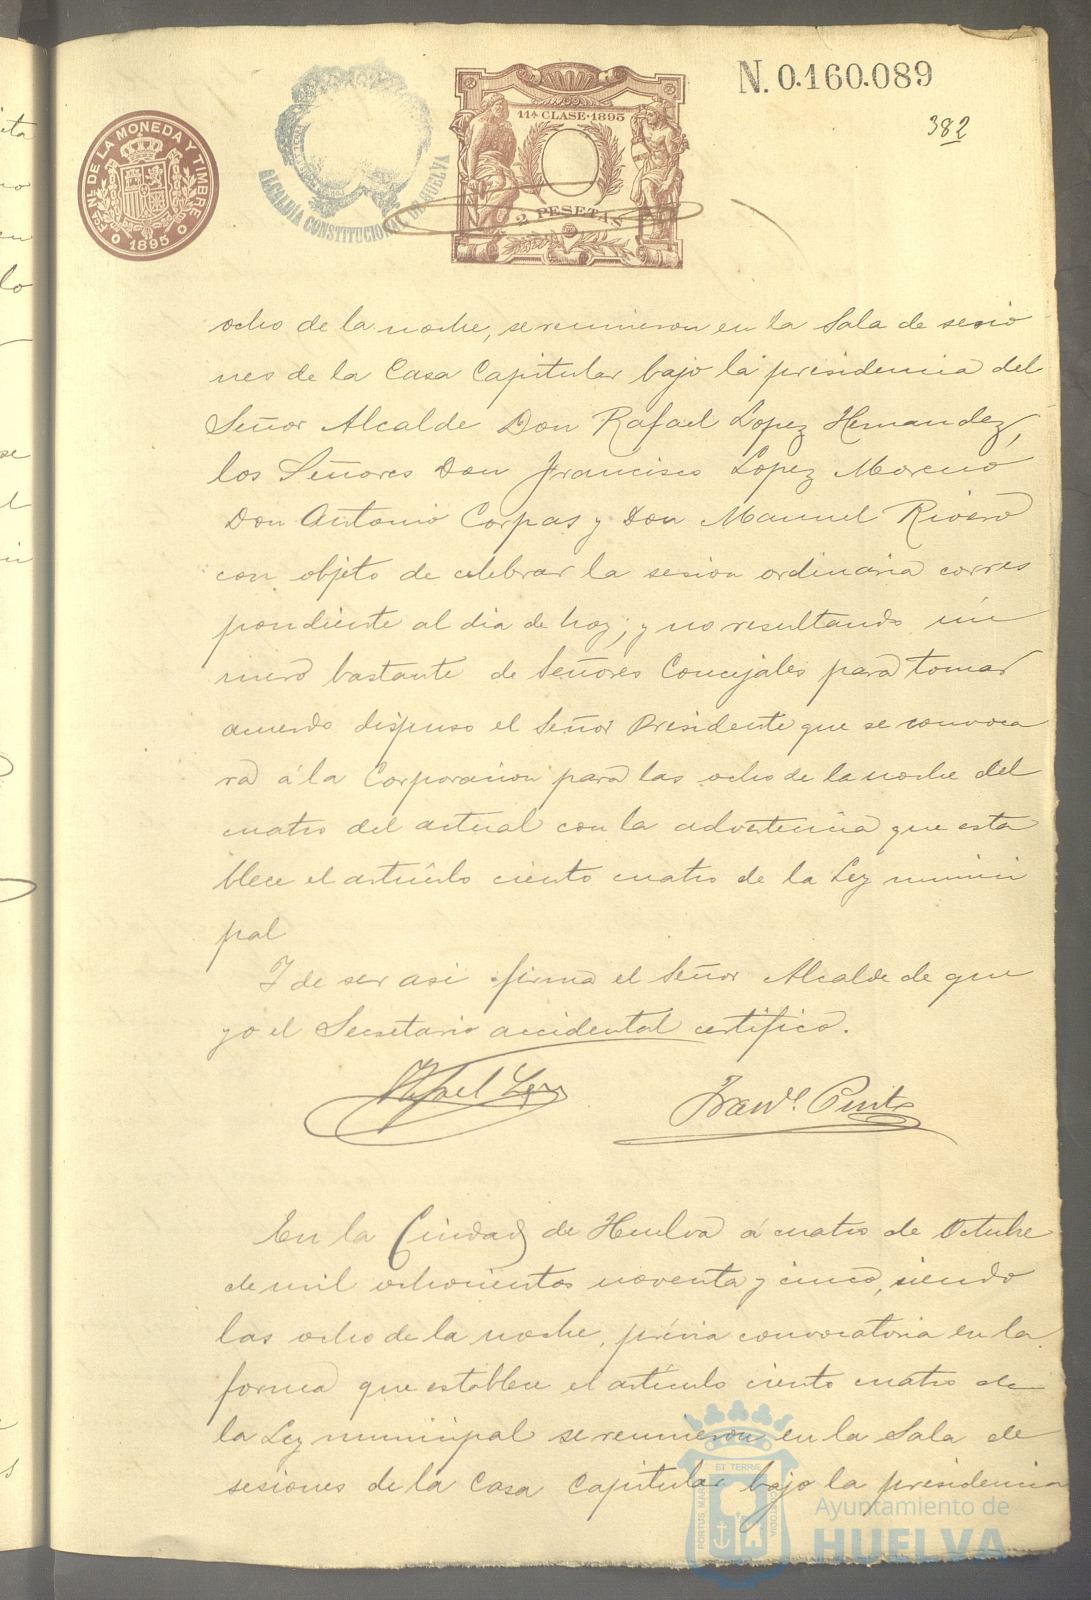 N. 0.160.089
382
Fca. Nl. DE LA MONEDA Y TIMBRE
1895
ALCALDÍA CONSTITUCIONAL DE HUELVA
11ª CLASE·1895
2 PESETAS
ocho de la noche, se reunieron en la Sala de sesio
nes de la Casa Capitular bajo la presidencia del
Señor Alcalde Don Rafael Lopez Hernandez,
los Señores Don Francisco Lopez Moreno
Don Antonio Corpas y Don Manuel Rivero
con objeto de celebrar la sesion ordinaria corres
pondiente al dia de hoy; y no resultando nú
mero bastante de Señores Concejales para tomar
acuerdo dispuso el Señor Presidente que se convoca
ra á la Corporacion para las ocho de la noche del
cuatro del actual con la advertencia que esta
blece el artículo ciento cuatro de la Ley munici
pal
Y de ser asi firma el Señor Alcalde de que
yo el Secretario accidental certifico.
Rafael Lopez
Franco. Pinto
En la Ciudad de Huelva á cuatro de Octubre
de mil ochocientos noventa y cinco, siendo
las ocho de la noche, prévia convocatoria en la
forma que establece el artículo ciento cuatro de
la Ley municipal se reunieron en la Sala de
sesiones de la Casa Capitular bajo la presidencia
PORTUS MARIS ET TERRAE CUSTODIA
Ayuntamiento de
HUELVA